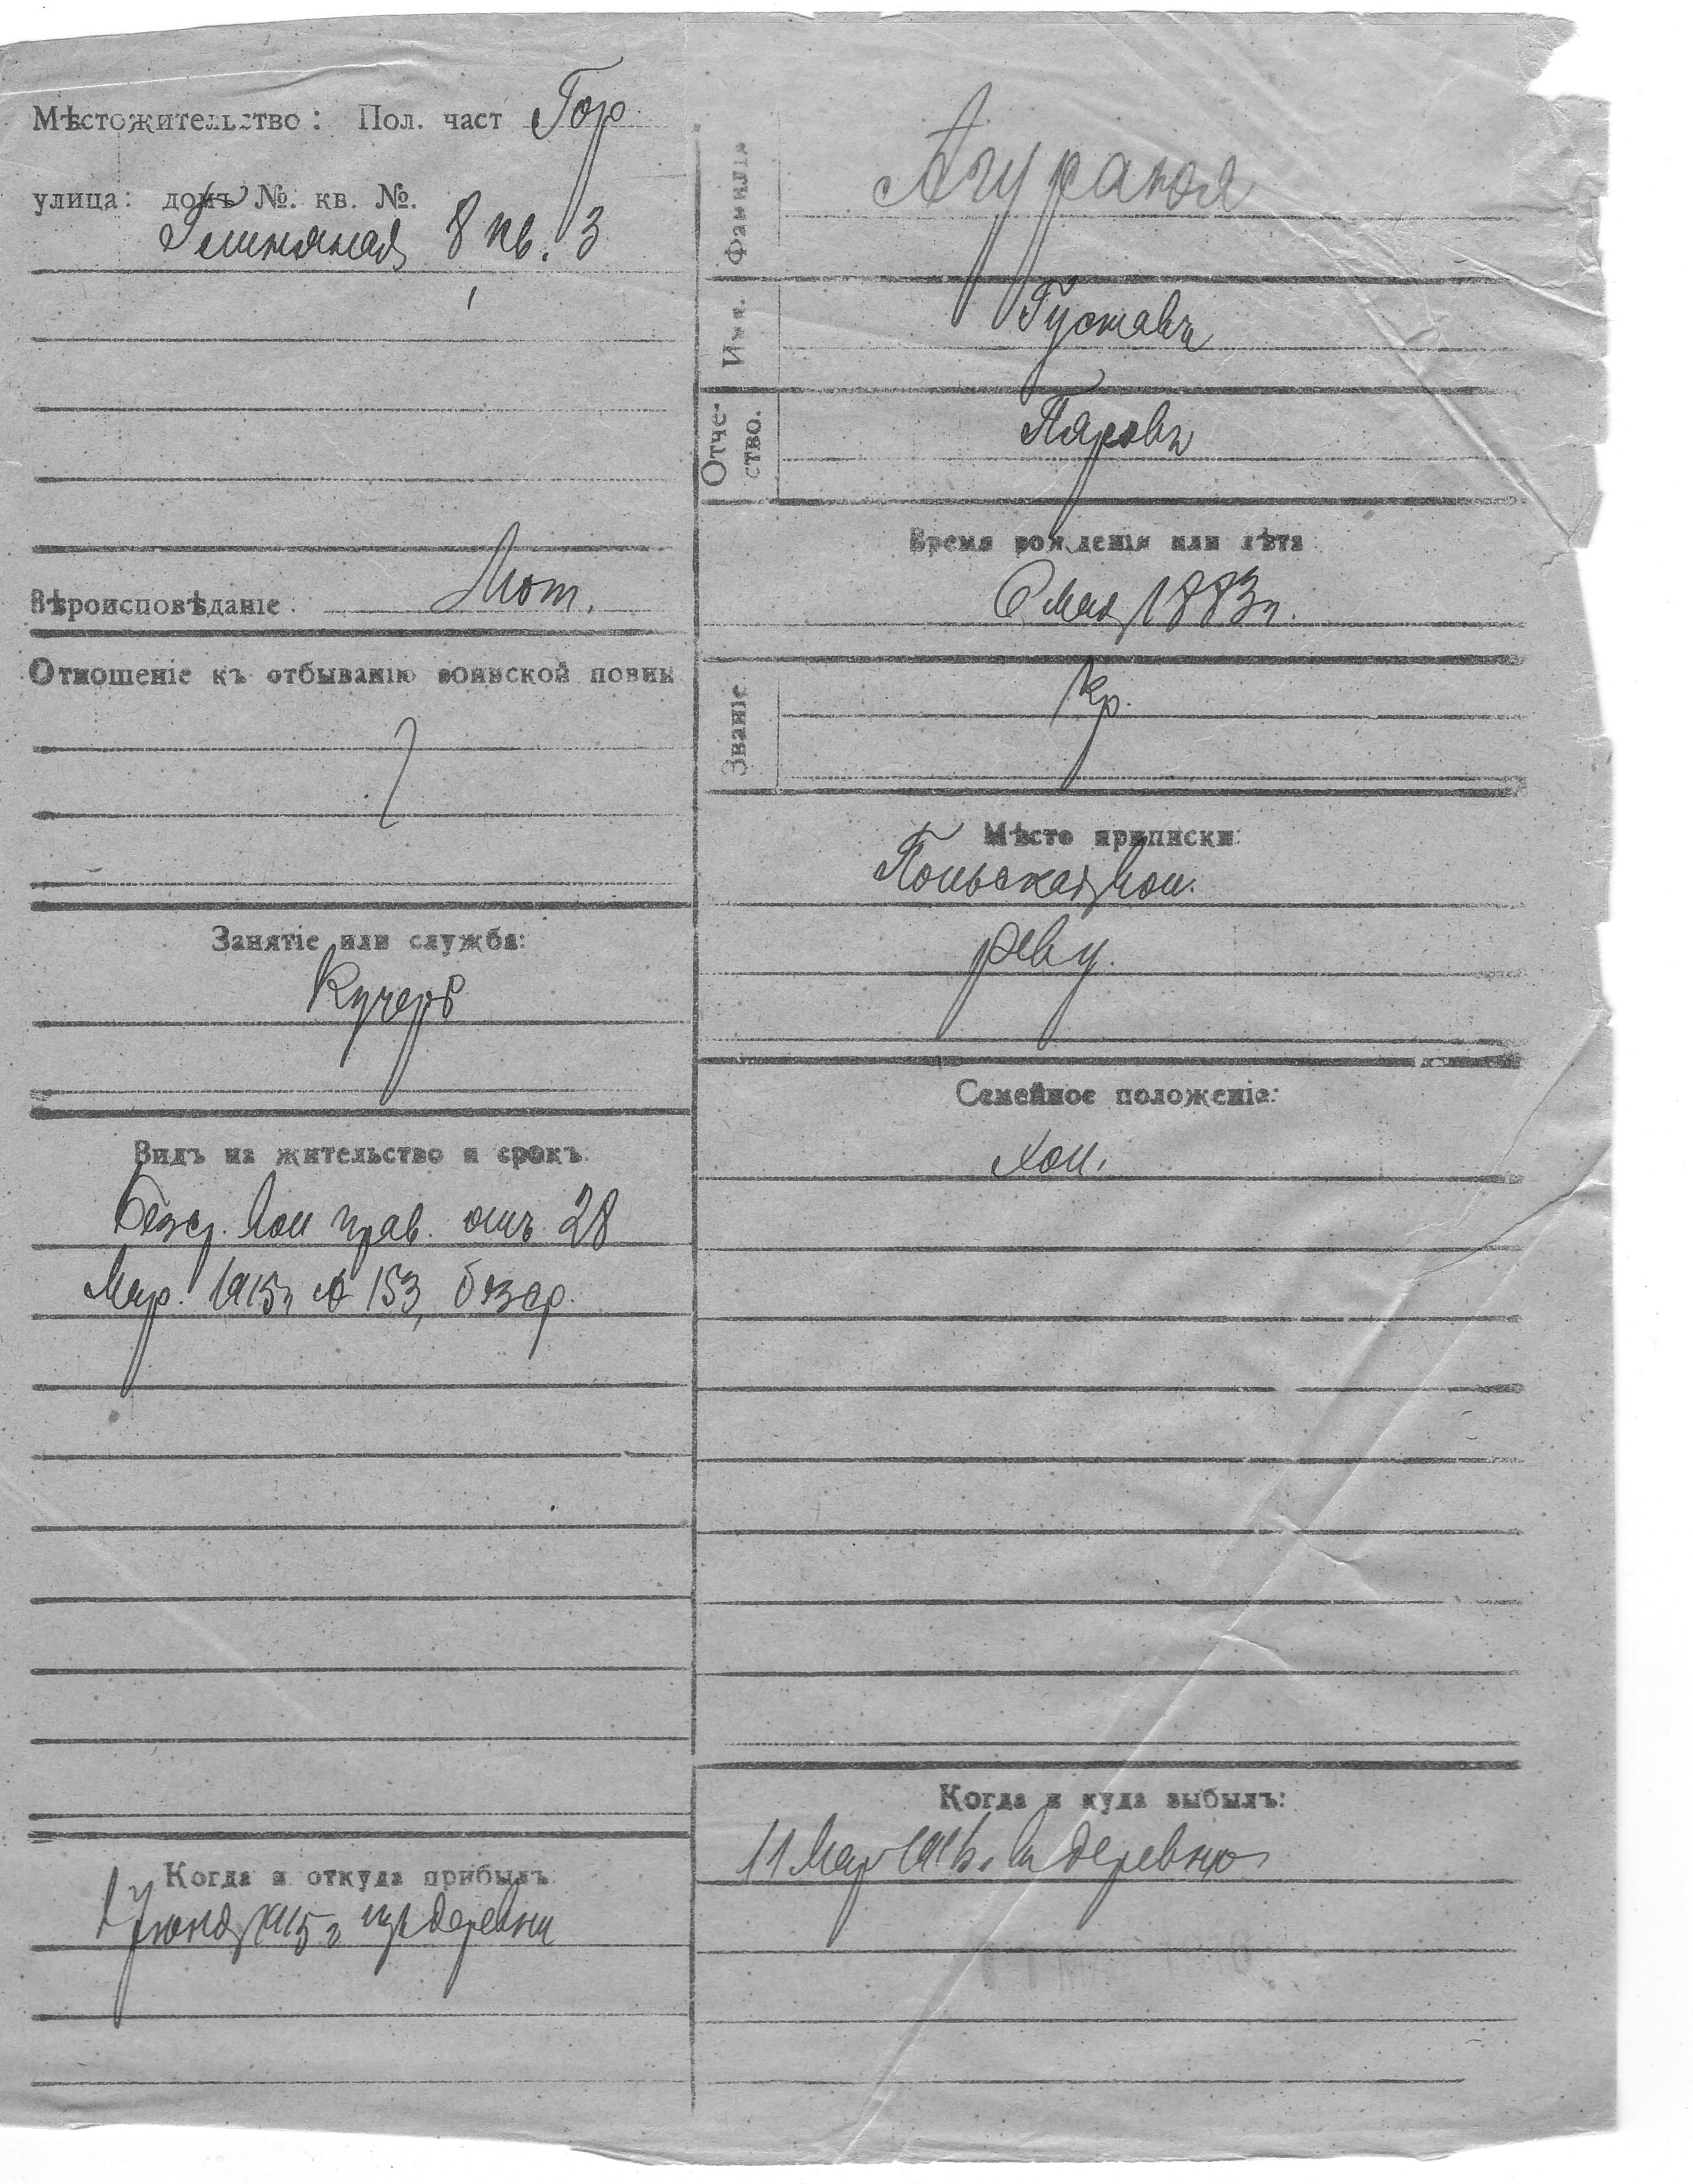 Мѣстожительство: Пол. част Гор.
улица: домъ №. кв. №.
Глиняная 8 кв. 3
Вѣроисповѣданіе: Лют.
Отношеніе къ отбыванію воинской повин
Занятіе или служба:
Кучеръ
Видъ на жительство и срокъ.
Безср. Вол прав. отъ 28
Мар. 1915 г № 153, безср.
Когда и откуда прибылъ
Іюня 1915 г изъ деревни
Фамилія
Агураюя
Имя.
Густавъ
Отче-
ство.
Время рожденія или лѣта
6 мая 1883 г.
Званіе
кр.
Мѣсто приписки
вол.
Рев у.
Семейное положеніе:
хол.
Когда и куда выбылъ:
11 Мар 1916 г. въ деревню